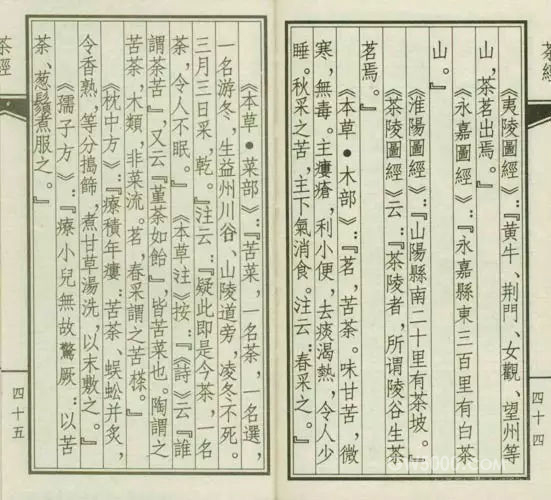 茶經
《夷陵圖經》：『黄牛、荆門、女觀、望州等
山，茶茗出焉。』
《永嘉圖經》：『永嘉縣東三百里有白茶
山。』
《淮陽圖經》：『山陽縣南二十里有茶坡。』
《茶陵圖經》云：『茶陵者，所谓陵谷生茶
茗焉。』
《本草•木部》：『茗，苦茶。味甘苦，微
寒，無毒。主瘻瘡，利小便，去痰渴熱，令人少
睡。秋采之苦，主下氣消食。注云：春采之。』
四十四
《本草•菜部》：『苦菜，一名茶，一名選，
一名游冬，生益州川谷、山陵道旁，凌冬不死。
三月三日采，乾。』注云：『疑此即是今茶，一名
茶，令人不眠。』《本草注》按：『《詩》云『誰
謂茶苦』，又云『堇茶如飴』，皆苦菜也。陶謂之
苦茶，木類，非菜流。茗，春采謂之苦搽。』
《枕中方》：『療積年瘻：苦茶、蜈蚣并炙，
令香熟，等分搗篩，煮甘草湯洗，以末敷之。』
《孺子方》：『療小兒無故驚厥：以苦
茶、葱鬚煮服之。』
茶經
四十五